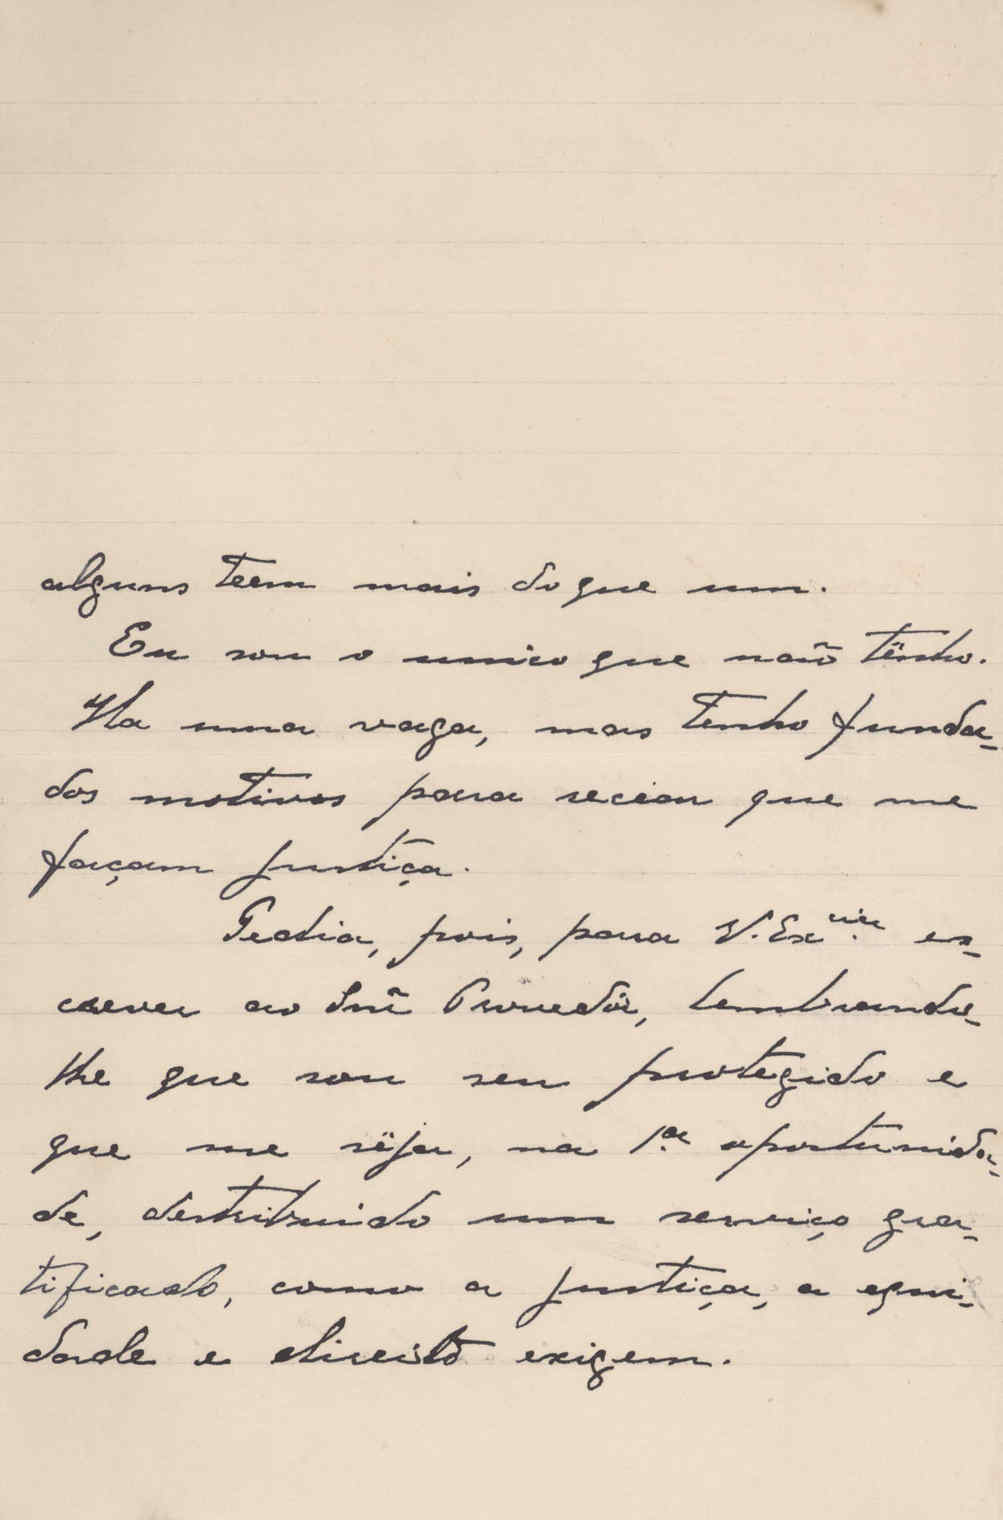 alguns teem mais do que um.
Eu sou o unico que não tênho.
Ha uma vaga, mas tenho funda-
dos motivos para recear que me
façam justiça.
Pedia, pois, para V. Ex.cia es-
crever ao Snr̃ Provedôr, lembrando-
lhe que sou seu protegido e
que me sêja, na 1.a oportunida-
de, destribuido um serviço gra-
tificado, como a justiça, a equi-
dade e direito exigem.